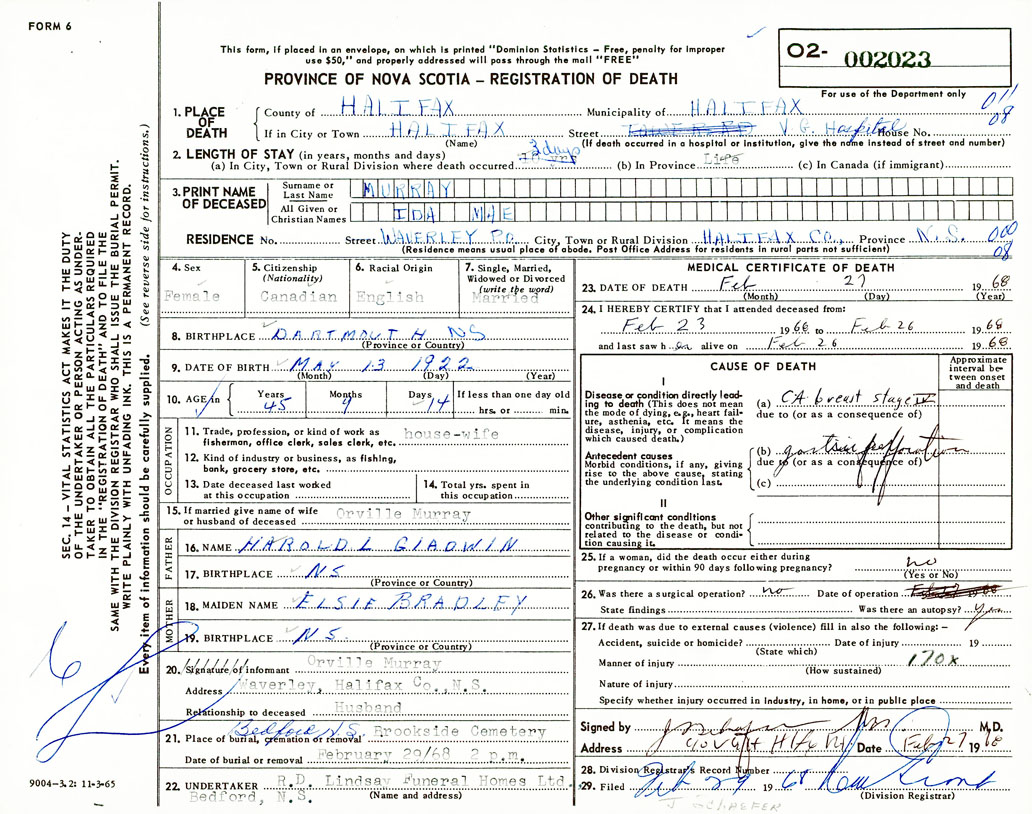 FORM 6
This form, if placed in an envelope, on which is printed "Dominion Statistics – Free, penalty for improper
use $50," and properly addressed will pass through the mail "FREE"
PROVINCE OF NOVA SCOTIA – REGISTRATION OF DEATH
O2- 002023
For use of the Department only
011
08
1. PLACE OF DEATH
County of HALIFAX Municipality of HALIFAX
If in City or Town HALIFAX Street V.G. Hospital House No.
(Name) (If death occurred in a hospital or institution, give the name instead of street and number)
2. LENGTH OF STAY (in years, months and days)
(a) In City, Town or Rural Division where death occurred 3 days (b) In Province Life (c) In Canada (if immigrant)
3. PRINT NAME OF DECEASED
Surname or Last Name MURRAY
All Given or Christian Names IDA MAE
RESIDENCE No. Street WAVERLEY P.O. City, Town or Rural Division HALIFAX CO., Province N.S.
000
08
(Residence means usual place of abode. Post Office Address for residents in rural parts not sufficient)
4. Sex Female
5. Citizenship (Nationality) Canadian
6. Racial Origin English
7. Single, Married, Widowed or Divorced (write the word) Married
8. BIRTHPLACE DARTMOUTH NS
(Province or Country)
9. DATE OF BIRTH MAY 13 1922
(Month) (Day) (Year)
10. AGE in Years 45 Months 9 Days 14 If less than one day old
hrs. or min.
OCCUPATION
11. Trade, profession, or kind of work as
fisherman, office clerk, sales clerk, etc. house-wife
12. Kind of industry or business, as fishing,
bank, grocery store, etc.
13. Date deceased last worked
at this occupation
14. Total yrs. spent in
this occupation
15. If married give name of wife
or husband of deceased Orville Murray
FATHER
16. NAME HAROLD L GLADWIN
17. BIRTHPLACE NS
(Province or Country)
MOTHER
18. MAIDEN NAME ELSIE BRADLEY
19. BIRTHPLACE N S.
(Province or Country)
20. Signature of informant Orville Murray
Address Waverley, Halifax Co., N.S.
Relationship to deceased Husband
21. Place of burial, cremation or removal Bedford N.S. Brookside Cemetery
Date of burial or removal February 29/68 2 p.m.
22. UNDERTAKER R.D. Lindsay Funeral Homes Ltd.
Bedford, N.S. (Name and address)
MEDICAL CERTIFICATE OF DEATH
23. DATE OF DEATH Feb 27 1968
(Month) (Day) (Year)
24. I HEREBY CERTIFY that I attended deceased from:
Feb 23 1968 to Feb 26 1968
and last saw her alive on Feb 26 1968
CAUSE OF DEATH
Approximate interval between onset and death
I
Disease or condition directly leading to death (This does not mean the mode of dying, e.g., heart failure, asthenia, etc. It means the disease, injury, or complication which caused death.)
(a) CA breast stage IV
due to (or as a consequence of)
Antecedent causes
Morbid conditions, if any, giving rise to the above cause, stating the underlying condition last.
(b) gastric perforation
due to (or as a consequence of)
(c)
II
Other significant conditions
contributing to the death, but not related to the disease or condition causing it.
25. If a woman, did the death occur either during
pregnancy or within 90 days following pregnancy? no
(Yes or No)
26. Was there a surgical operation? no Date of operation
State findings Was there an autopsy? Yes
27. If death was due to external causes (violence) fill in also the following: –
Accident, suicide or homicide? Date of injury 19
(State which)
Manner of injury 170X
(How sustained)
Nature of injury
Specify whether injury occurred in industry, in home, or in public place
Signed by M.D.
Address Date Feb 27 1968
28. Division Registrar's Record Number
29. Filed Feb 29 1968
(Division Registrar)
J SCHAEFER
SEC. 14 – VITAL STATISTICS ACT MAKES IT THE DUTY
OF THE UNDERTAKER OR PERSON ACTING AS UNDER-
TAKER TO OBTAIN ALL THE PARTICULARS REQUIRED
IN THE "REGISTRATION OF DEATH" AND TO FILE THE
SAME WITH THE DIVISION REGISTRAR WHO SHALL ISSUE THE BURIAL PERMIT.
WRITE PLAINLY WITH UNFADING INK. THIS IS A PERMANENT RECORD.
Every item of information should be carefully supplied. (See reverse side for instructions.)
9004–3.2: 11-3-65